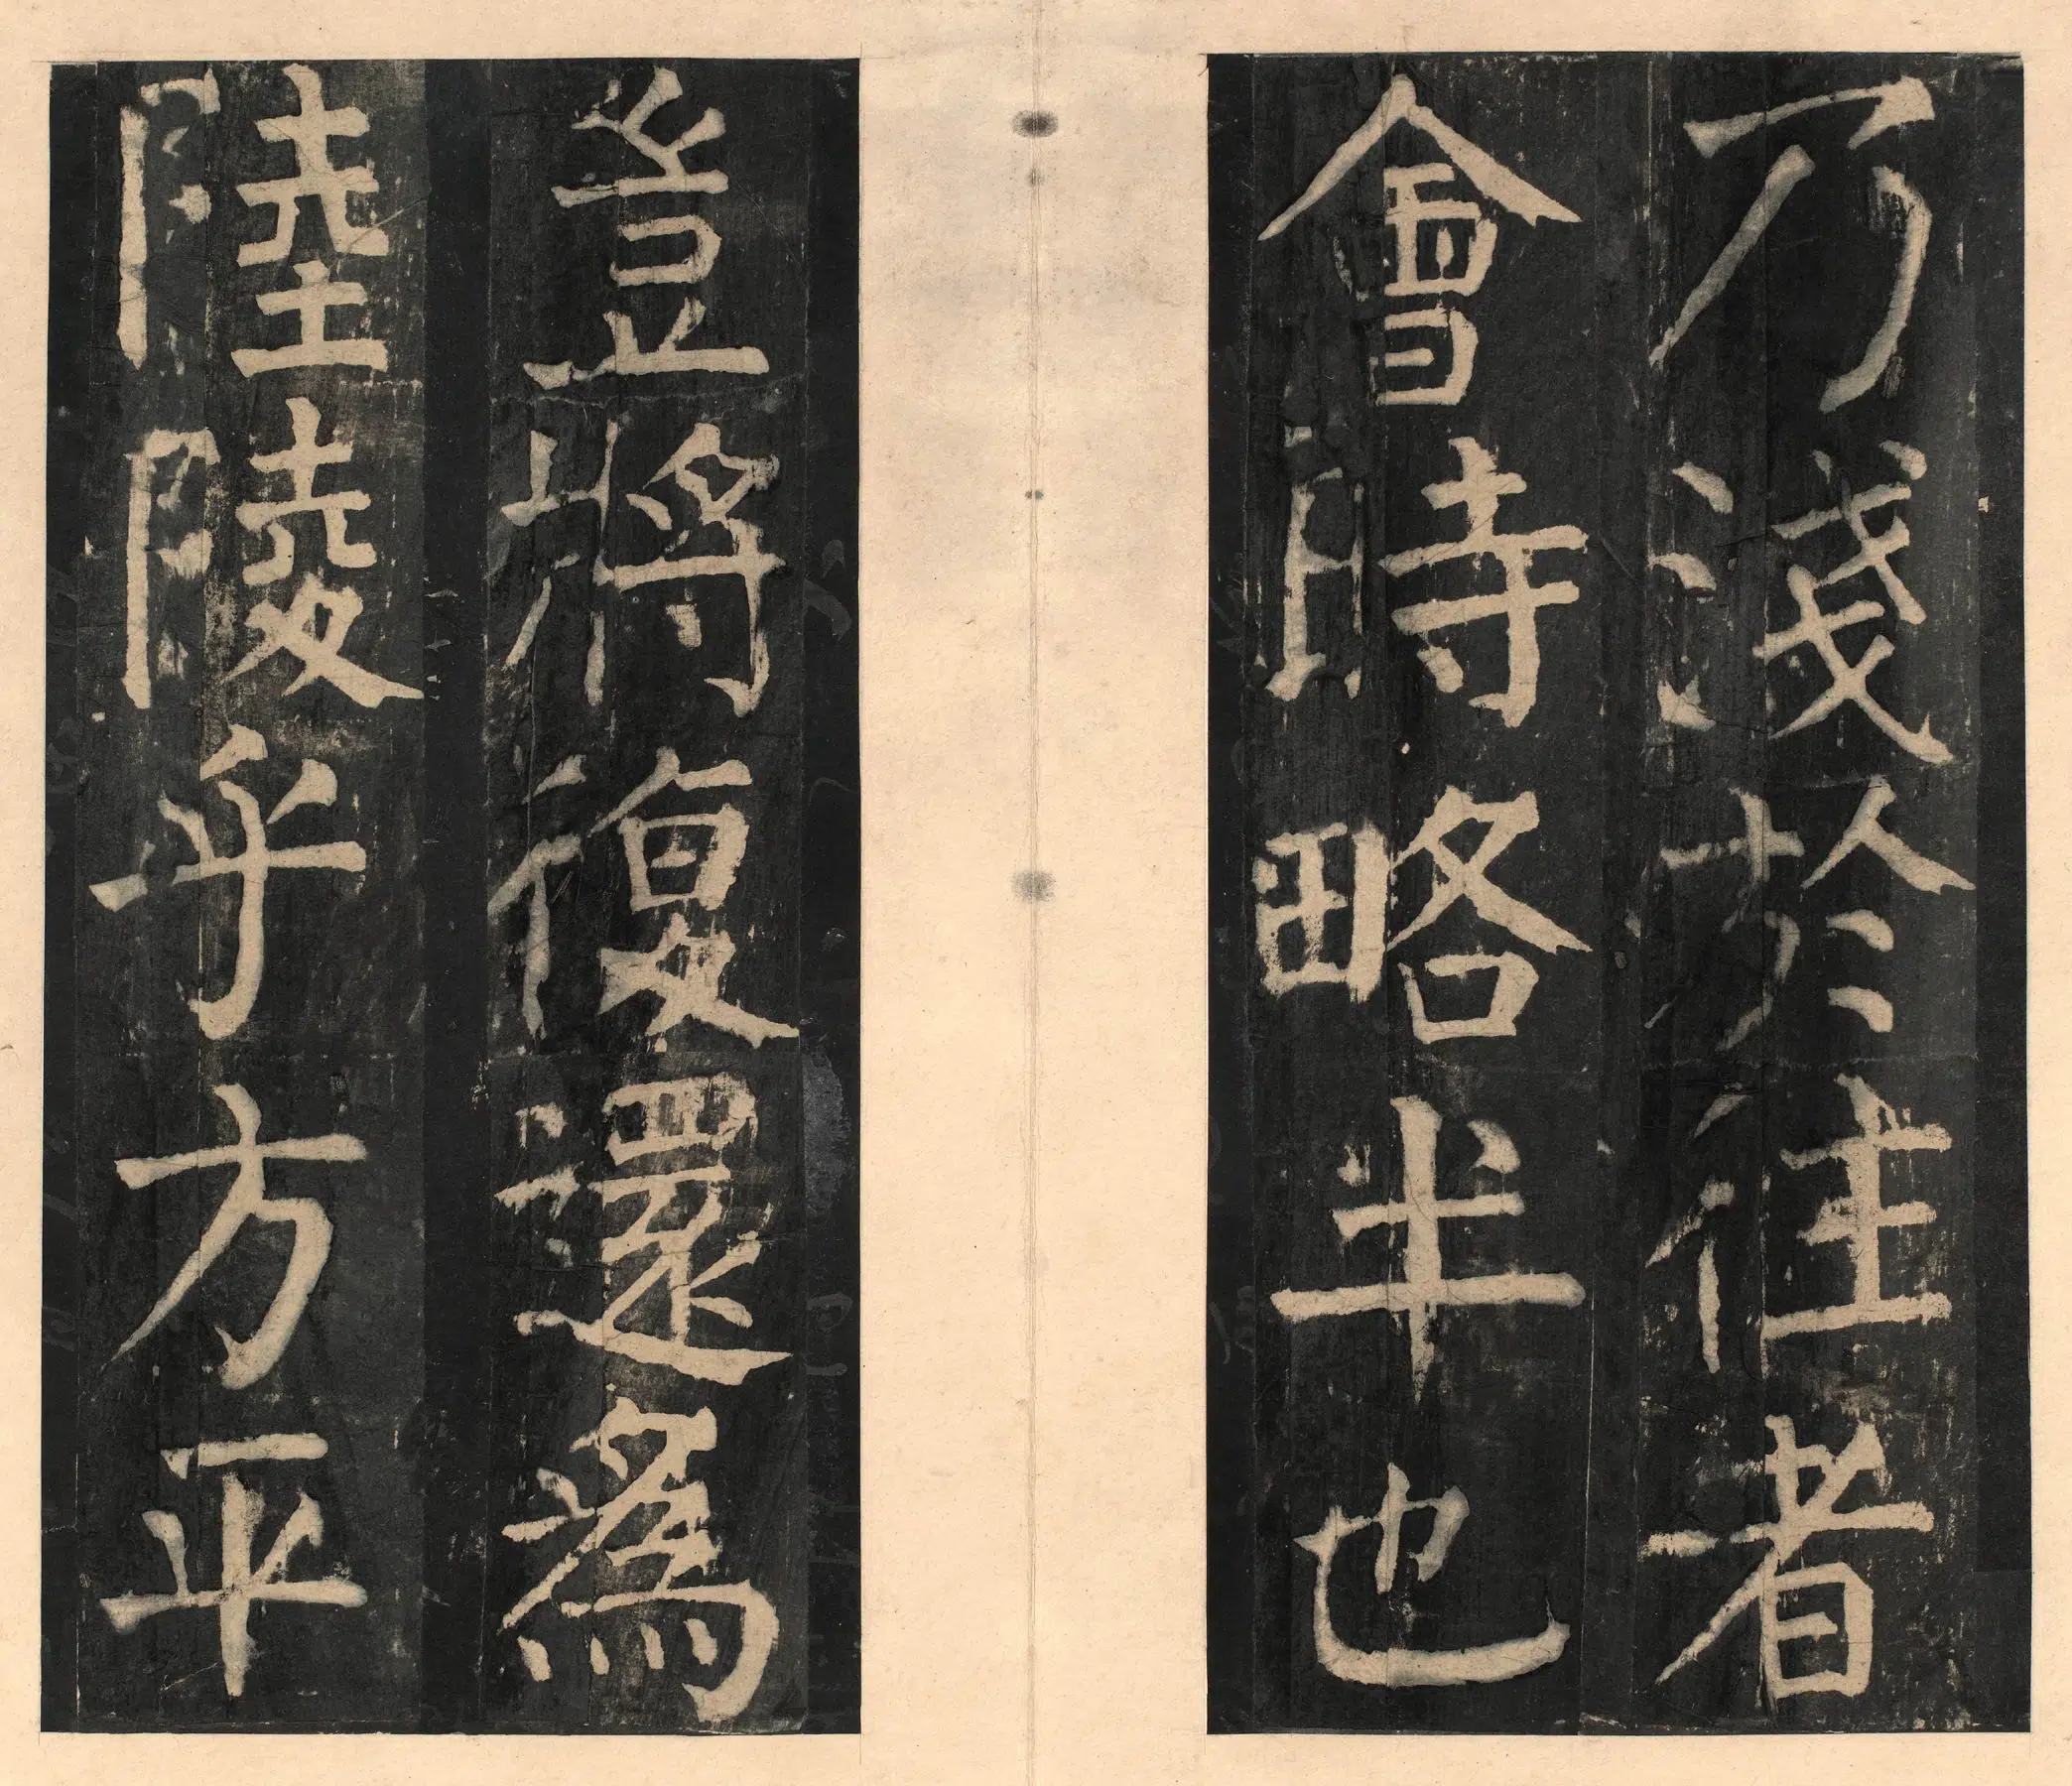 乃淺於往者
會時略半也
豈將復還為
陸陵乎方平